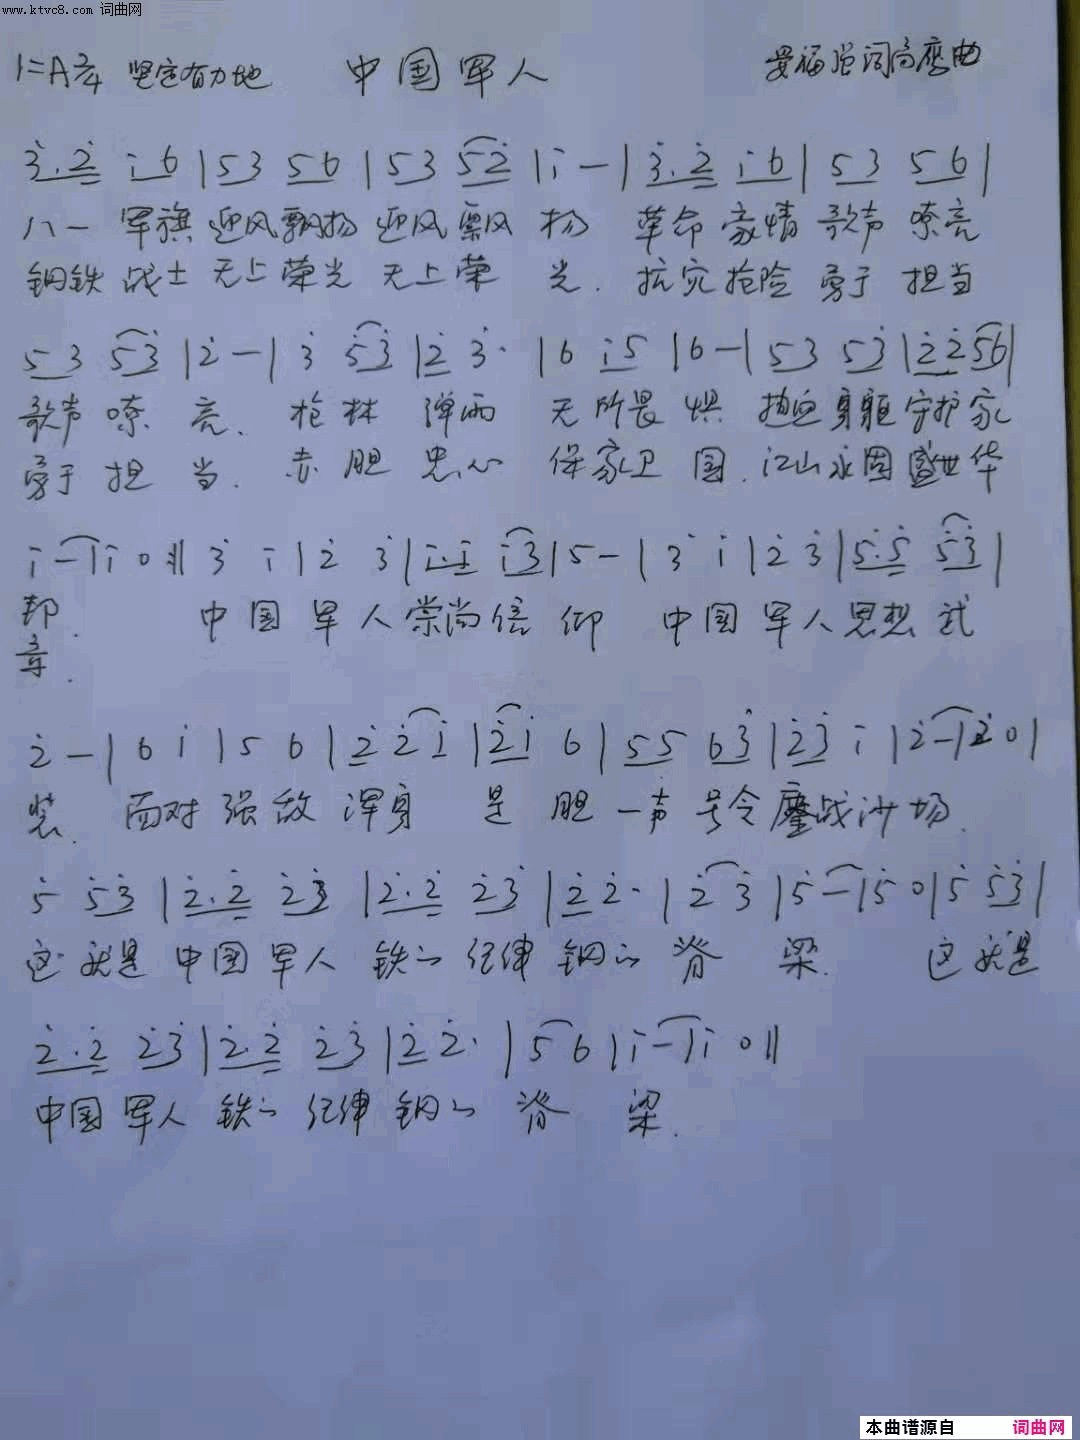 www.ktvc8.com 词曲网
1=A 2/4 坚定有力地 中国军人 晏福强词 高鹰曲
3̇.2̇ i6 | 53 56 | 53 52̇ | i - | 3̇.2̇ i6 | 53 56 |
八一 军旗 迎风飘扬 迎风飘风 扬 革命 豪情 歌声 嘹亮
钢铁 战士 无上荣光 无上荣 光. 抗灾抢险 勇于 担当
53 53̇ | 2̇ - | 3̇ 53̇ | 2̇ 3̇. | 6 i5 | 6 - | 53 53̇ | 2̇2̇ 56 |
歌声 嘹 亮. 枪林 弹雨 无所畏 惧 热血身躯守护家
勇于 担 当. 赤胆 忠心 保家卫 国. 江山永固盛世华
i - | i 0 :|| 3̇ i | 2̇ 3̇ | i.i i3̇ | 5 - | 3̇ i | 2̇ 3̇ | 5̇.5̇ 5̇3̇ |
邦. 中国 军人崇尚信 仰 中国 军人思想 武
章.
2̇ - | 6 i | 5 6 | 2̇ 2̇i | 2̇i 6 | 55 63̇ | 2̇3̇ i | 2̇ - | 2̇ 0 |
装. 面对 强敌 浑身 是 胆 一声 号令鏖战沙场.
5̇ 5̇3̇ | 2̇.2̇ 2̇3̇ | 2̇.2̇ 2̇3̇ | 2̇ 2̇. | 2̇ 3̇ | 5̇ - | 5̇ 0 | 5̇ 5̇3̇ |
这 就是 中国 军人 铁的 纪律 钢的 脊 梁. 这 就是
2̇.2̇ 2̇3̇ | 2̇.2̇ 2̇3̇ | 2̇ 2̇. | 5 6 | i - | i 0 ||
中国 军人 铁的 纪律 钢的 脊 梁.
本曲谱源自 词曲网